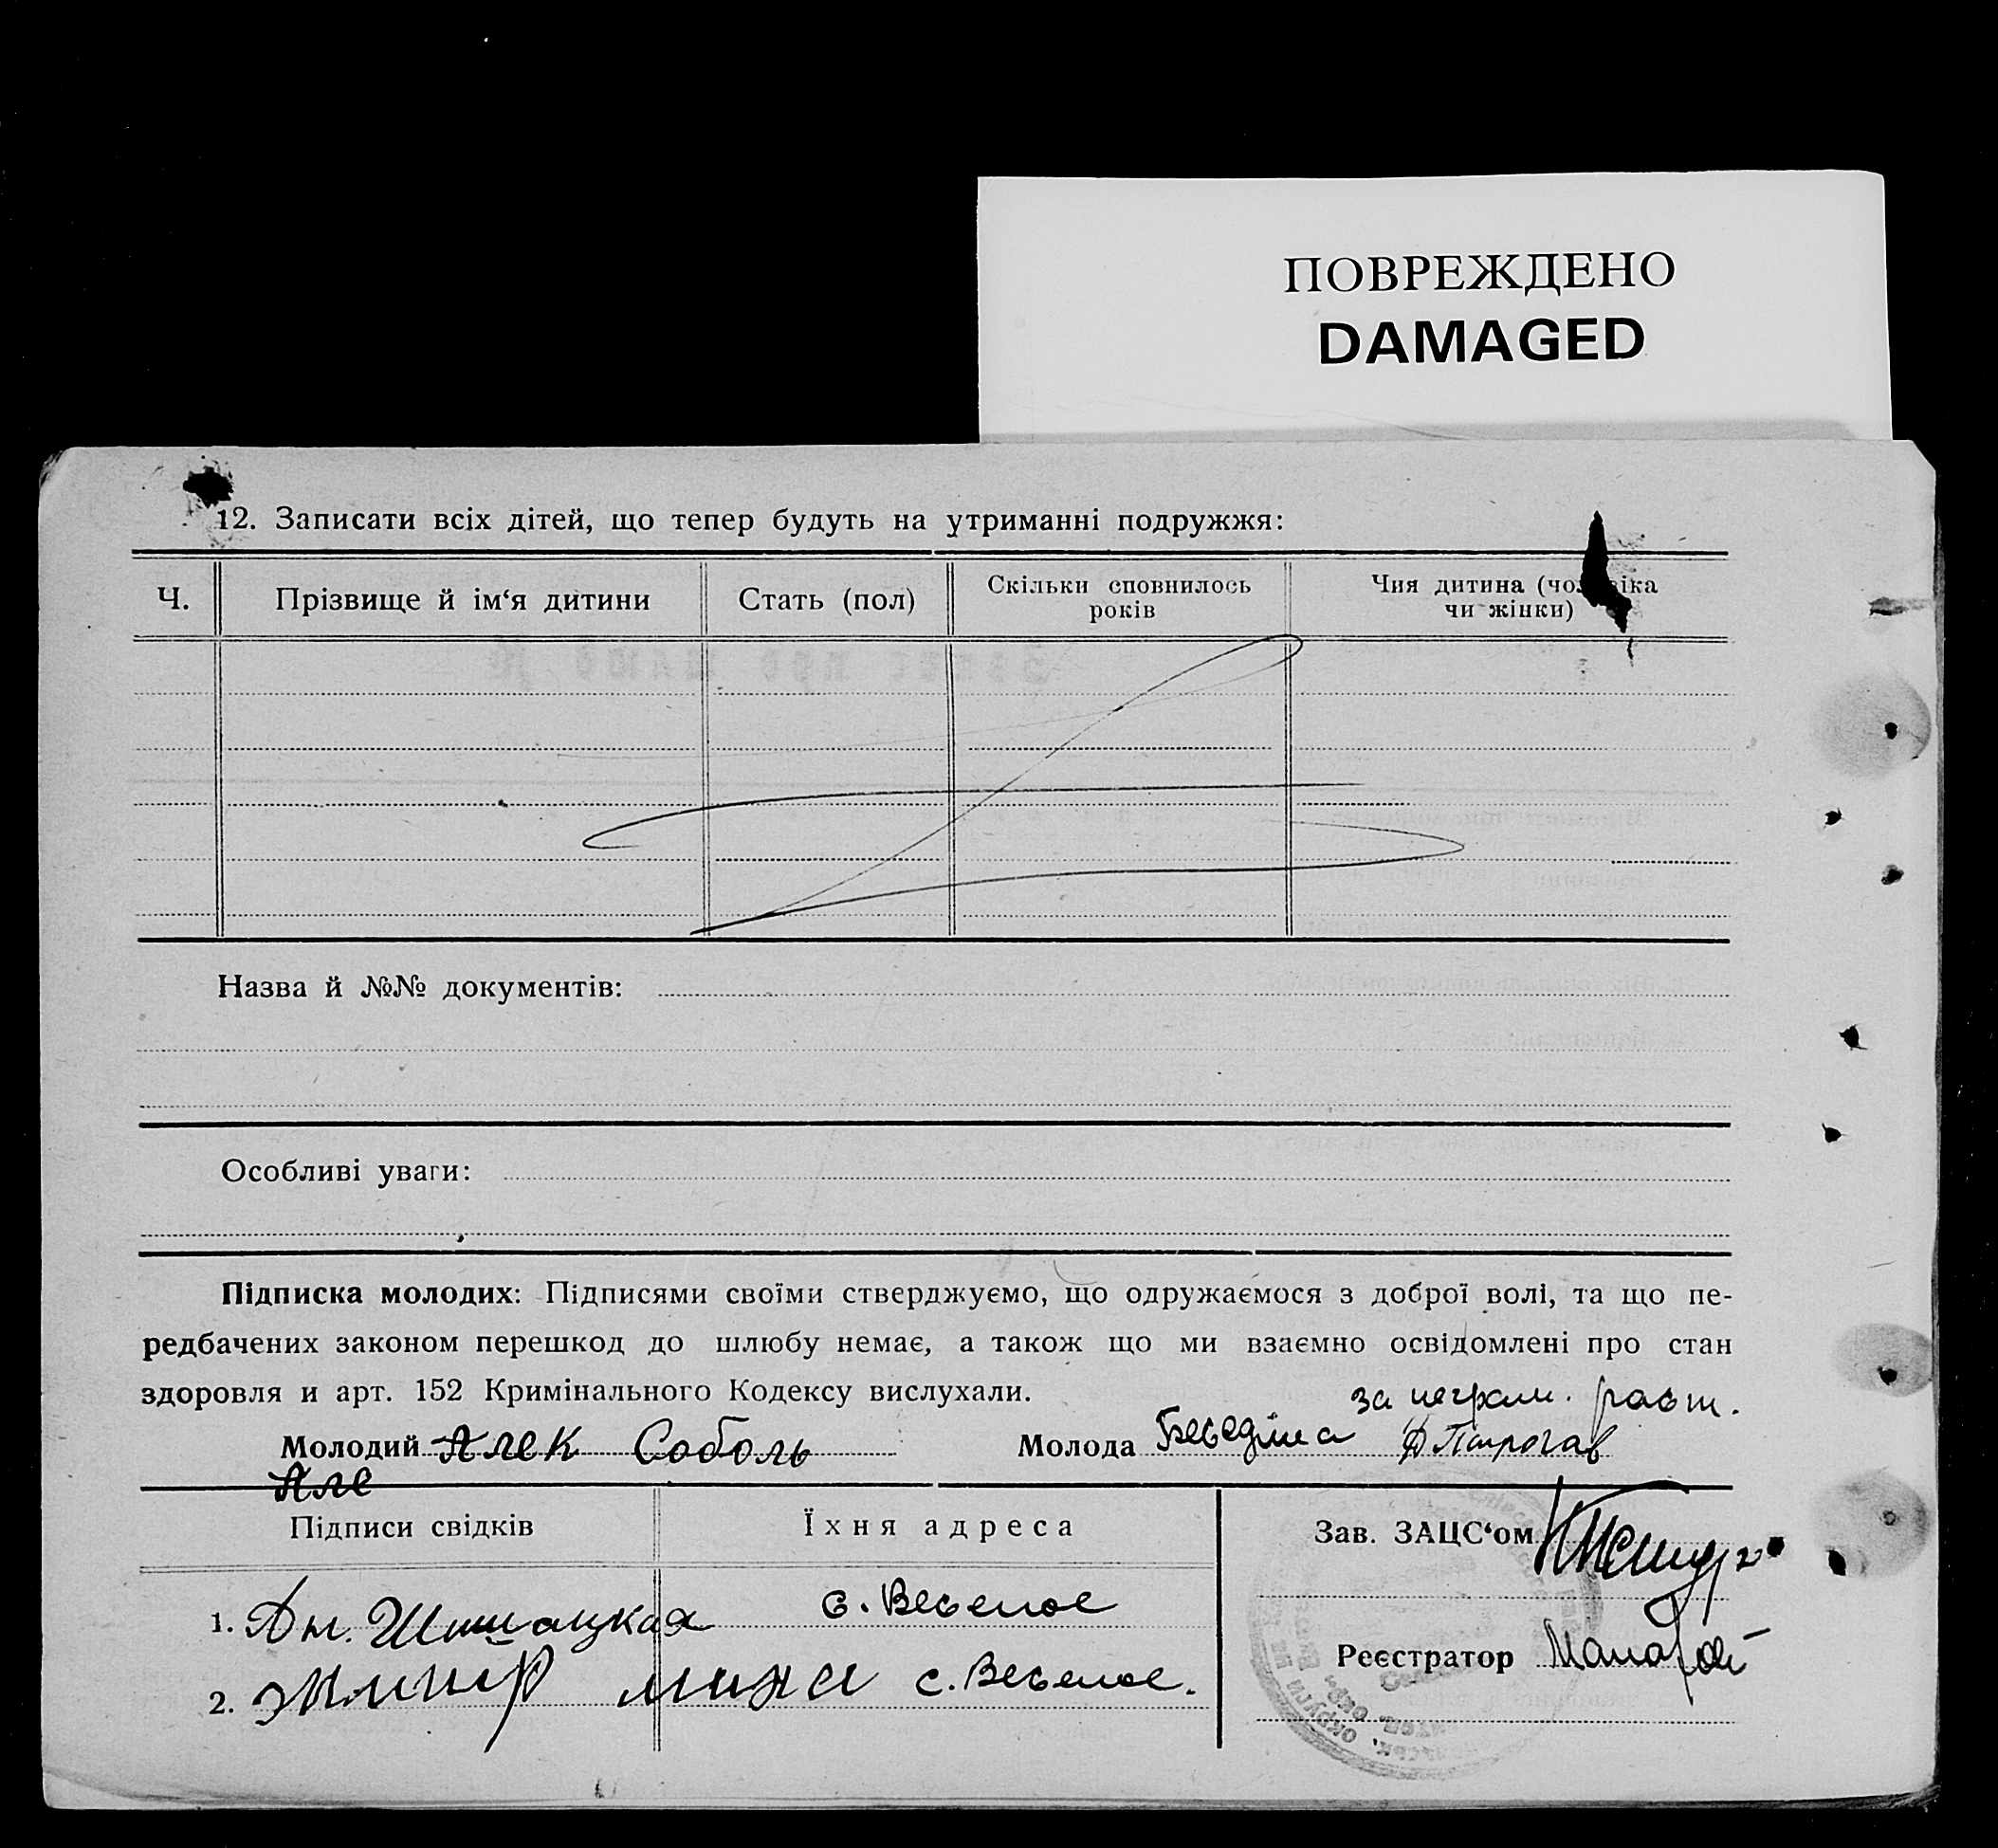 ПОВРЕЖДЕНО
DAMAGED
12. Записати всіх дітей, що тепер будуть на утриманні подружжя:
Ч.
Прізвище й ім‘я дитини
Стать (пол)
Скільки сповнилось
років
Чия дитина (чо іка
чи жінки)
Назва й №№ документів:
Особливі уваги:
Підписка молодих: Підписями своїми стверджуємо, що одружаємося з доброї волі, та що пе-
редбачених законом перешкод до шлюбу немає, а також що ми взаємно освідомлені про стан
здоровля и арт. 152 Кримінального Кодексу вислухали.
за неграм. расп.
Молодий Алек Соболь
Молода
Але
Підписи свідків
Їхня адреса
Зав. ЗАЦС‘ом
1.
с. Веселое
Реєстратор
2.
с. Веселое.